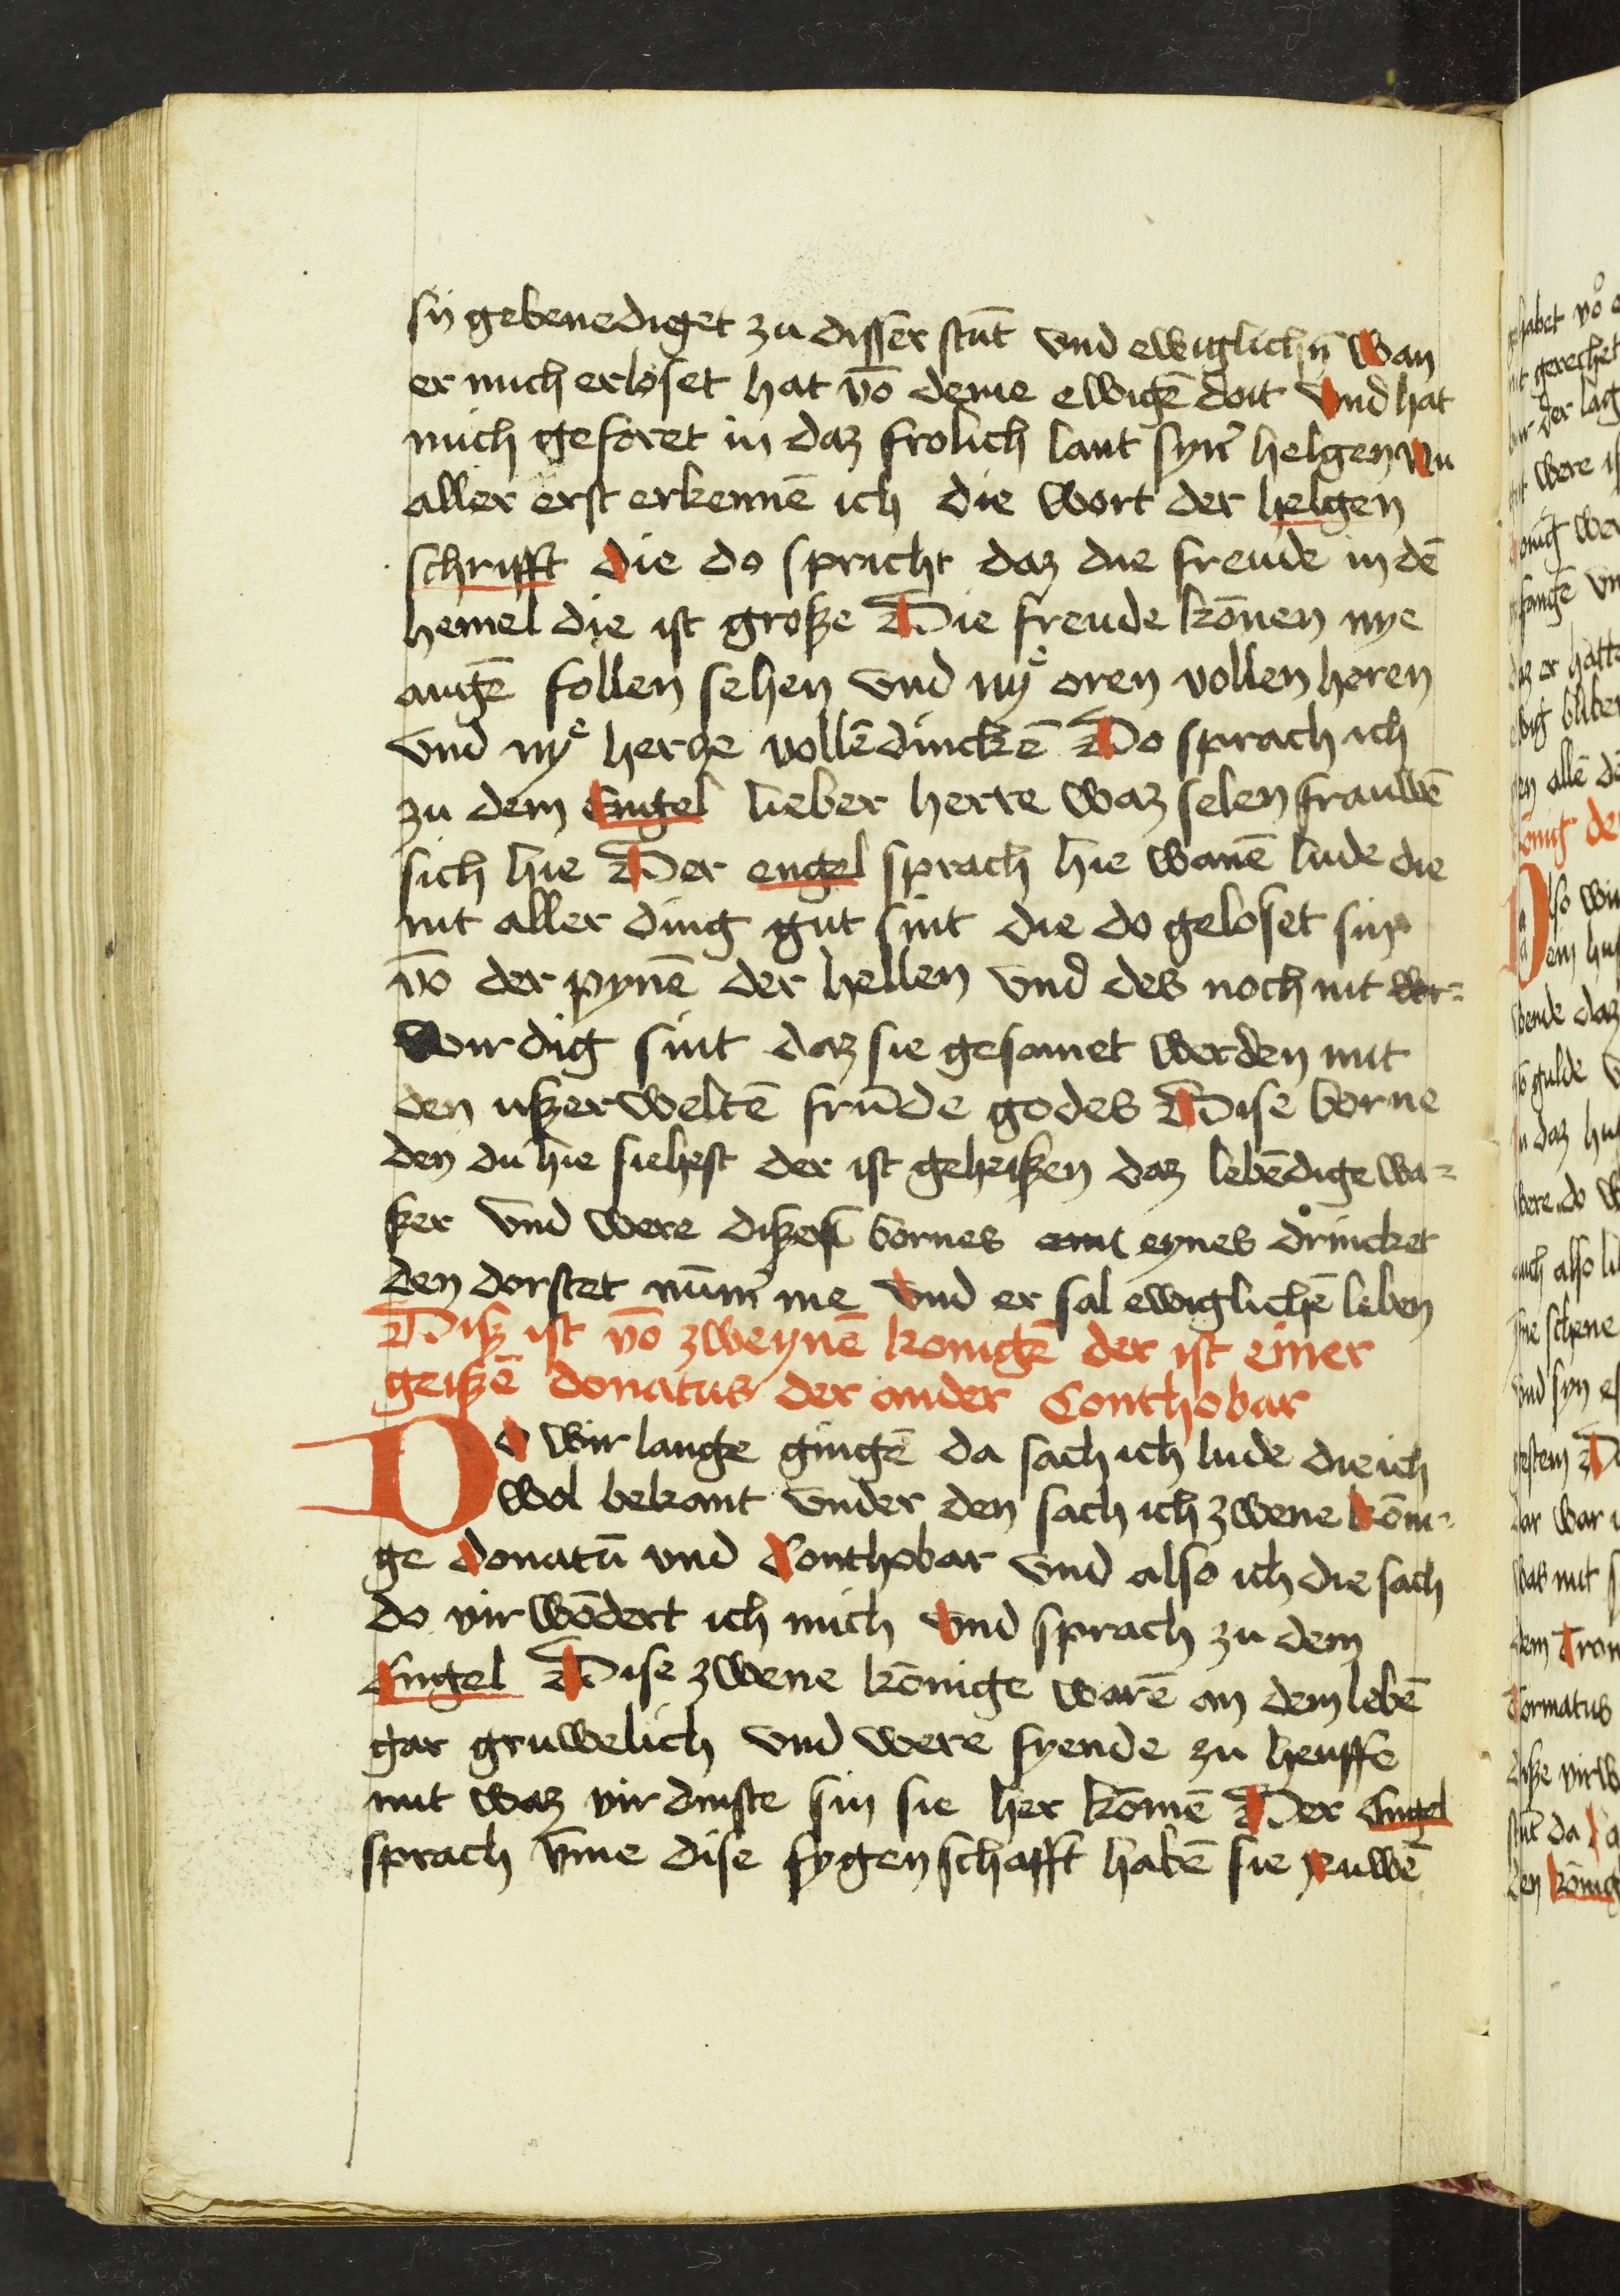 sij gebenediget zu disser stūt vnd ewiglichn̄ Wan
er mich erloset hat vō deme ewigē doit Vnd hat
mich geforet in daz frolich lant syn̄ helgen Nu
aller erst erkennē ich die wort der helgen
schrifft Die do spricht daz die freude in dē
hemel die ist große Die freude kōnen nye
augē follen sehen vnd nyͤ oren vollen heren
vnd nyͤ hercze vollē dinckē Do sprach ich
zu dem Engel lieber herre waz selen frauwē
sich hie Der engel sprach hie wanē lude die
nit aller ding gut sint die do geloset sint
vō der pynē der hellen vnd des noch nit
wirdig sint daz sie gesamet werden mit
den ußerweltē frūde godes Dise borne
den du hie siehest der ist geheißen daz lebēdige wa-
ßer vnd were dißes bornes eynes drincket
den dorstet nūm̄ me Vnd er sal ewiglichē leben
Diß ist vō zweynē konigē der ist einer
geißē donatus der ander Conthobar
Do wir lange gingē da sach ich lude die ich
wol bekant vnder den sach ich zwene kōni-
ge Donatū vnd Conthobar vnd also ich die sach
do virwōdert ich mich Vnd sprach zu dem
Engel Dise zwene kōnige warē an dem lebē
gar gruwelich vnd were fyende zu heuffe
mit waz virdinste sin sie her kōmē Der Engel
sprach vm̄e dise fygenschafft habē sie ruwē